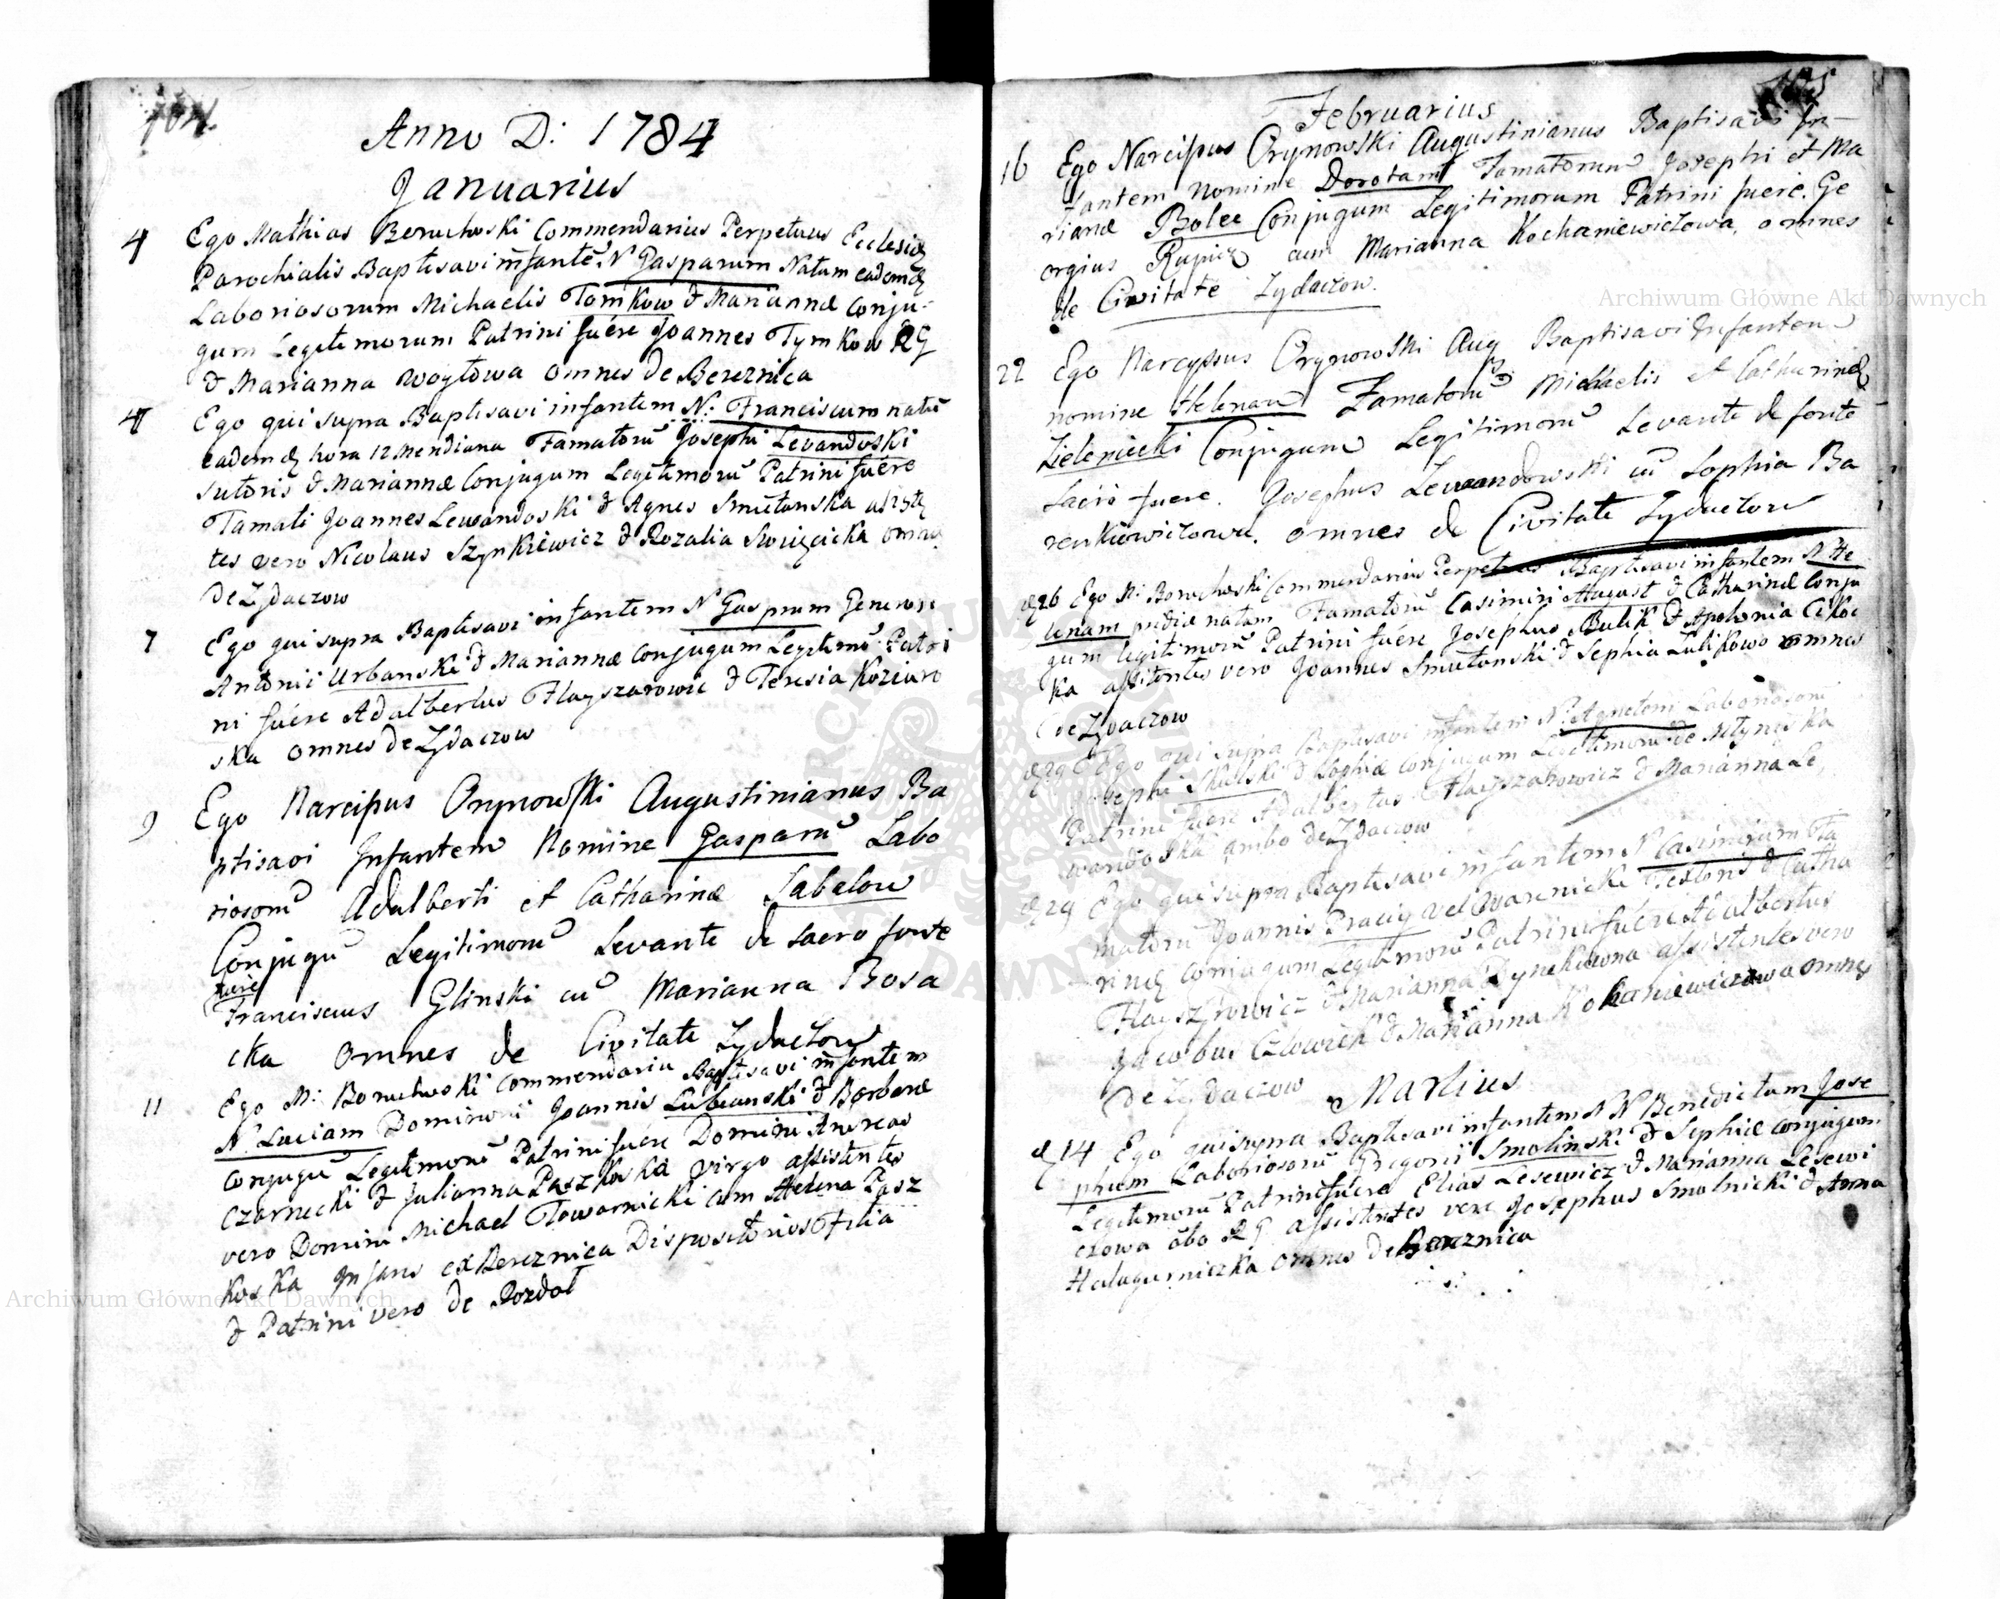 Anno D: 1784
Januarius
4 Ego Mathias Boruchoski Commendarius Perpetuus Ecclesiæ
Parochialis Baptisavi infantē N Gasparum Natum eademq
Laboriosorum Michaelis Tomkow & Mariannæ Conju-
gum Legitimorum Patrini fuére Joannes Tymkow RG
& Marianna Woytowa omnes de Bereznica
4 Ego qui supra Baptisavi infantem N: Franciscum natū
eademq hora 12 meridiana Famatorū Josephi Levandoski
sutoris & Mariannæ Conjugum Legitimorū Patrini fuére
Famati Joannes Lewandoski & Agnes Smutanska assistē
tes vero Nicolaus Szynkiewicz & Rozalia Swięcicka omnes
de Zydaczow
7 Ego qui supra Baptisavi infantem N Gasprum Generosi
Antonii Urbanski & Mariannæ conjugum Legitimū Patri
ni fuére Adalbertus Flayszarowic & Teresia Koziaro
ska omnes de Zydaczow
9 Ego Narcissus Orynowski Augustinianus Ba
ptisavi Infantem Nomine Gasparū Labo
riosorū Adalberti et Catharinæ Sabatow
Conjugū Legitimorū Levante de sacro fonte
fuére
Franciscus Glinski cū Marianna Bosa
cka omnes de Civitate Zydaczow
11 Ego M: Boruchoski Commendariu Baptisavi infantem
N. Luciam Dominorū Joannis Lubianski & Barbaræ
Conjugū Legitimorū Patrini fuére Domini Andreas
Czarnecki & Julianna Paszkoska virgo assistentes
vero Domini Michael Towarnicki cum Helena Pasz
koska Infans ex Bereznica Dispositorios Filia
& Patrini vero de Rozdoł
Februarius
16 Ego Narcissus Orynowski Augustinianus Baptisavi In-
fantem nomine Dorotam Famatorum Josephi et Ma
riannæ Bolec Conjugum Legitimorum Patrini fuére. Ge
orgius Rupicz cum Marianna Kochaniewiczowa, omnes
de Civitate Zydaczow.
22 Ego Narcyssus Orynowski Aug Baptisavi Infantem
nomine Helenam Famatorū Michaelis et Catharinæ
Zielenicki Conjugum Legitimorū Levante de fonte
Sacro fuere. Josephus Lewandowski cū Sophia Ba
renkiewiczowa. omnes de Civitate Zydaczow
26 Ego M: Boruchoski Commendarius Perpetuus Baptisavi infantem N He
lenam pridie natam Famatorū Casimiri August & Catharinæ Conju
gum legitimorū Patrini fuére Josephus Bulik & Apolonia
ka assistentes vero Joannes Smutanski & Sophia Lulikowo omnes
de Zydaczow
29 Ego qui supra Baptisavi infantem N: Agnetem Laboriosorū
Josephi Skulski & Sophiæ Conjugum Legitimorū de
Patrini fuére Adalbertus Flayszarowicz & Marianna Le
wandoska ambo de Zydaczow
29 Ego qui supra Baptisavi infantem N Casimirum Fa
matorū Joannis Pracig vel Warenicki Textoris & Catha
rinæ Conjugum Legitimorū Patrini fuére Adalbertus
Flayszrowicz & Marianna Dynekowna assistentes vero
Jacobus Człowiek & Marianna Kokaniewiczowa omnes
de Zydaczow
Martius
14 Ego qui supra Baptisavi infantem N N Benedictum Jose
phum Laboriosorū Gregorii Smolinski & Sophiæ Conjugum
Legitimorū Patrini fuére Elias Lesewicz & Marianna Lesewi
czowa abo RG assistentes vero Josephus Smolnicki & Anna
Halagurniczka omnes de Bereznica
Archiwum Główne Akt Dawnych
Archiwum Główne Akt Dawnych